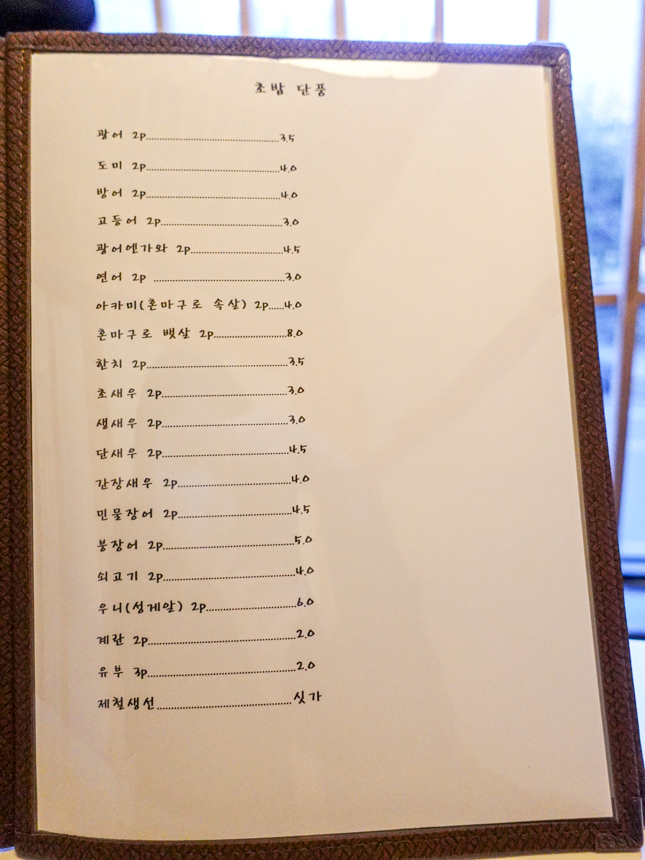 초밥 단품
광어 2p 3.5
도미 2p 4.0
방어 2p 4.0
고등어 2p 3.0
광어엔가와 2p 4.5
연어 2p 3.0
아카미(혼마구로 속살) 2p 4.0
혼마구로 뱃살 2p 8.0
한치 2p 3.5
초새우 2p 3.0
생새우 2p 3.0
단새우 2p 4.5
간장새우 2p 4.0
민물장어 2p 4.5
붕장어 2p 5.0
쇠고기 2p 4.0
우니(성게알) 2p 6.0
계란 2p 2.0
유부 3p 2.0
제철생선 싯가